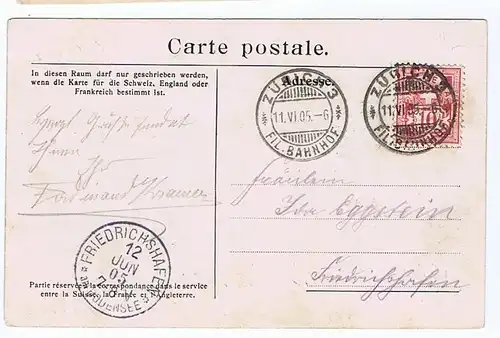 Carte postale.
In diesen Raum darf nur geschrieben werden,
wenn die Karte für die Schweiz, England oder
Frankreich bestimmt ist.
Adresse.
ZÜRICH 3
11.VI.05.–6
FIL. BAHNHOF
ZÜRICH 3
FIL. BAHNHOF
sendet
Ihnen
Ihr
Ferdinand Kramer
Fräulein
Ida Eggstein
Friedrichshafen
FRIEDRICHSHAFEN
12
JUN
05
BODENSEE
Partie réservée à la correspondance dans le service
entre la Suisse, la France et l'Angleterre.